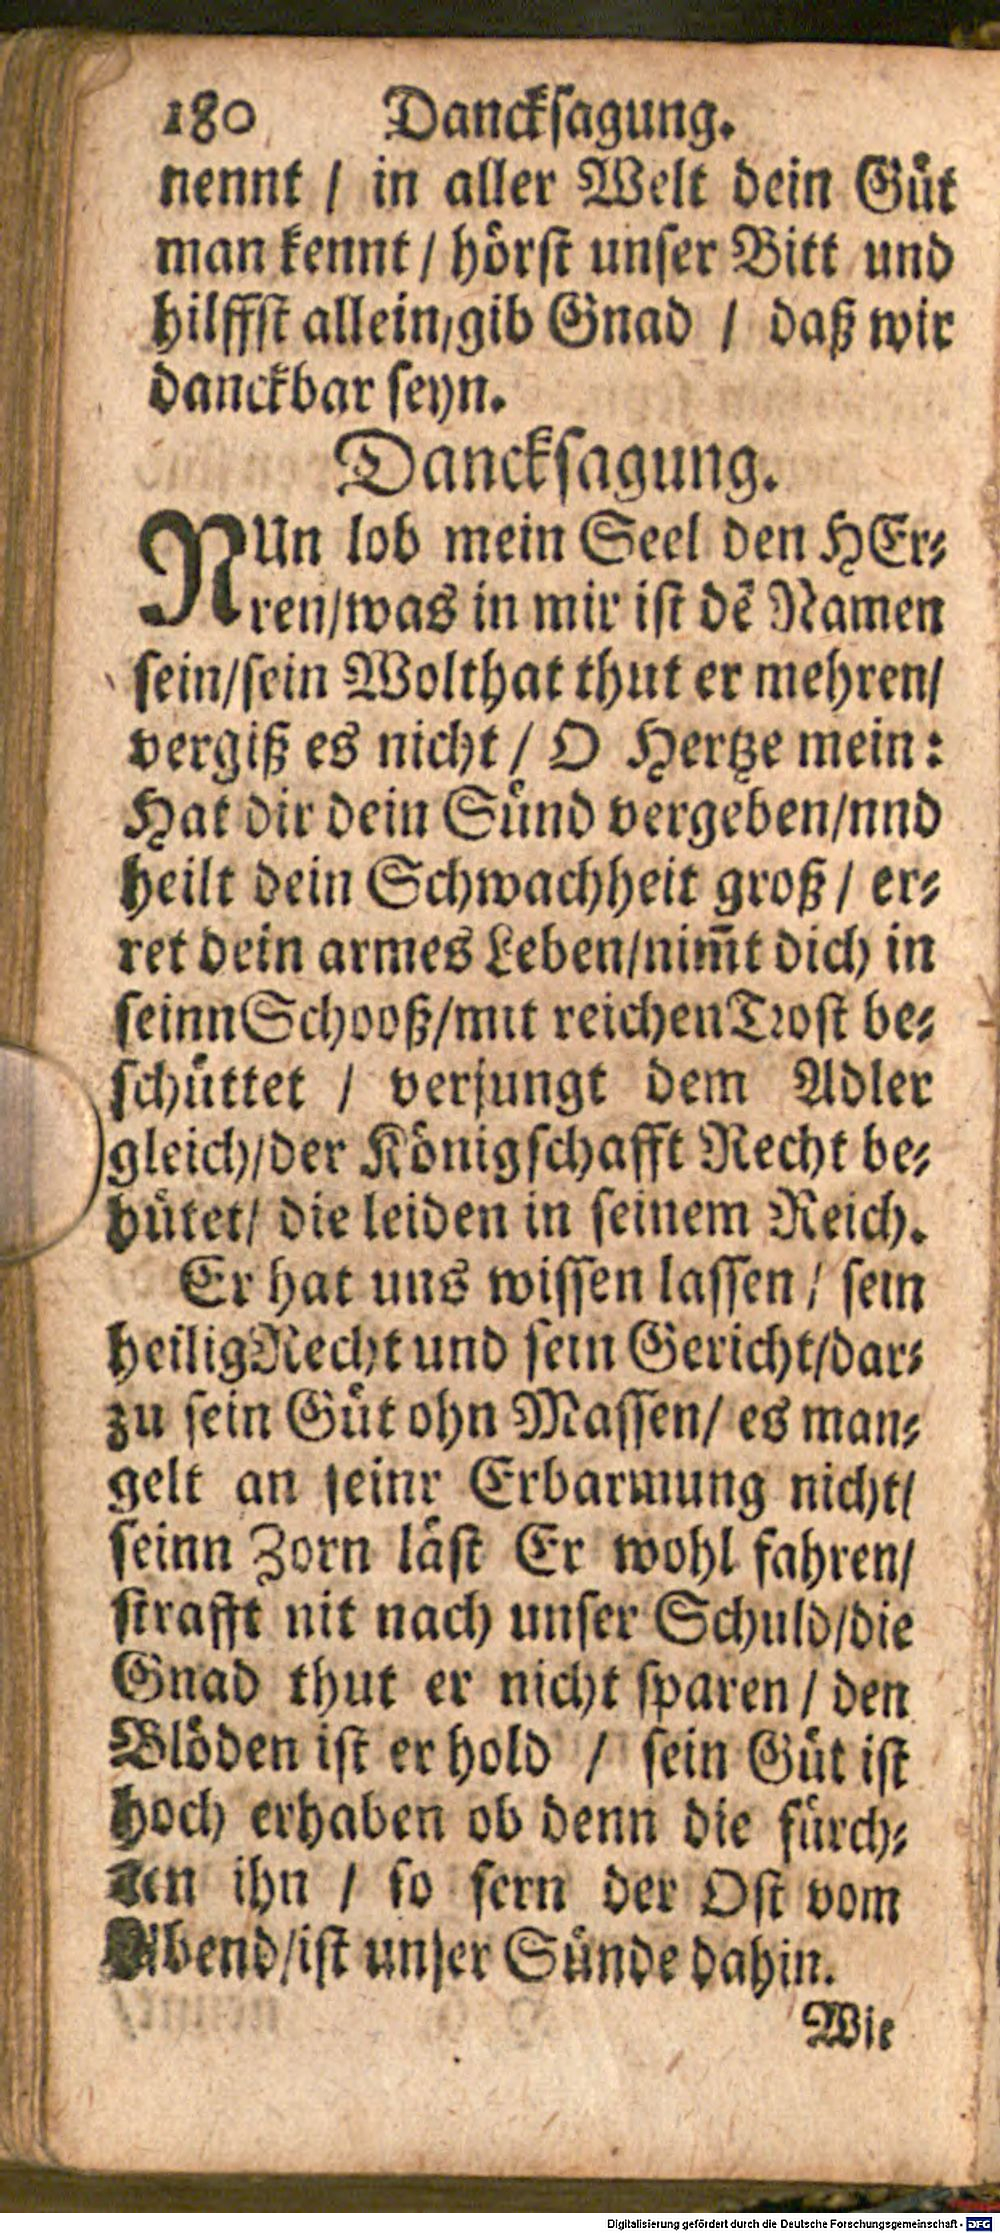 180 Danckſagung.
nennt / in aller Welt dein Guͤt
man kennt / hoͤrſt unſer Bitt und
hilffſt allein/gib Gnad / daß wir
danckbar ſeyn.
Danckſagung.
NUn lob mein Seel den HEr⸗
ren/was in mir iſt dē Namen
ſein/ſein Wolthat thut er mehren/
vergiß es nicht / O Hertze mein:
Hat dir dein Suͤnd vergeben/nnd
heilt dein Schwachheit groß / er⸗
ret dein armes Leben/nim̄t dich in
ſeinn Schooß/mit reichen Troſt be⸗
ſchuͤttet / verjungt dem Adler
gleich/der Koͤnig ſchafft Recht be⸗
huͤtet/ die leiden in ſeinem Reich.
Er hat uns wiſſen laſſen / ſein
heilig Recht und ſein Gericht/dar⸗
zu ſein Guͤt ohn Maſſen/ es man⸗
gelt an ſeinr Erbarmung nicht/
ſeinn Zorn laͤſt Er wohl fahren/
ſtrafft nit nach unſer Schuld/die
Gnad thut er nicht ſparen / den
Bloͤden iſt er hold / ſein Guͤt iſt
hoch erhaben ob denn die fuͤrch⸗
ten ihn / ſo fern der Oſt vom
Abend/iſt unſer Suͤnde dahin.
Wie
Digitalisierung gefördert durch die Deutsche Forschungsgemeinschaft - DFG